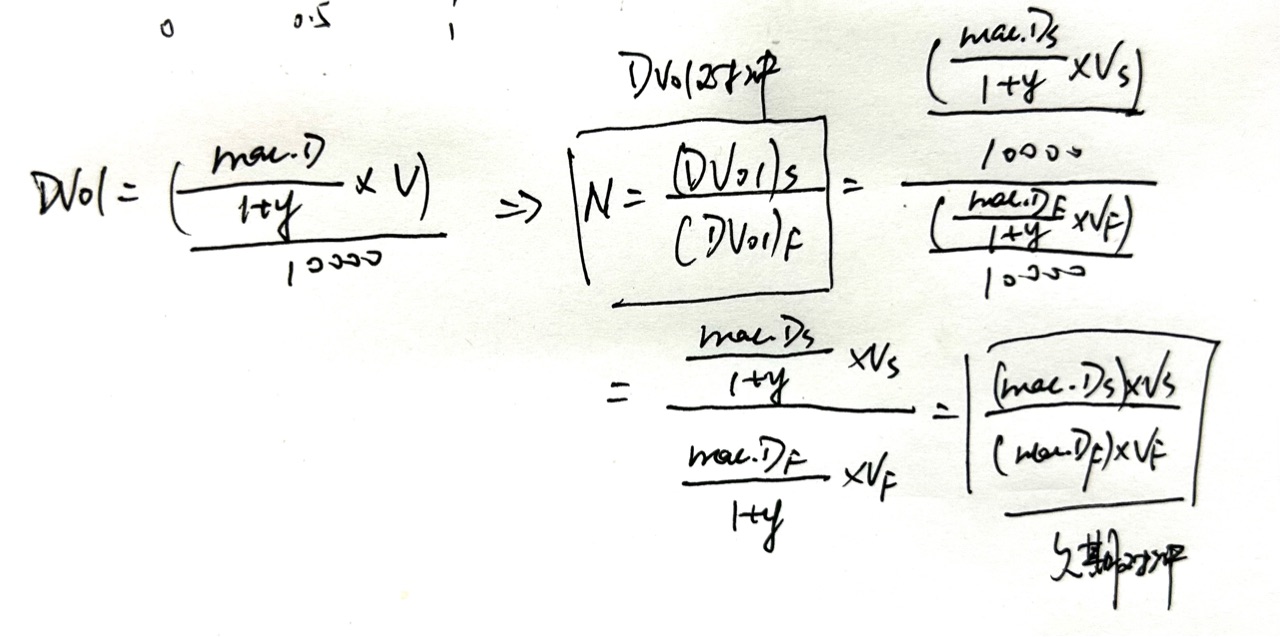 0 0.5 1
DVol对冲
DVol = (mac.D/1+y × V)/10000 ⇒ N = (DVol)s/(DVol)F = (mac.Ds/1+y × Vs)/10000 / (mac.DF/1+y × VF)/10000
= mac.Ds/1+y × Vs / mac.DF/1+y × VF = (mac.Ds)×Vs/(mac.DF)×VF
久期对冲